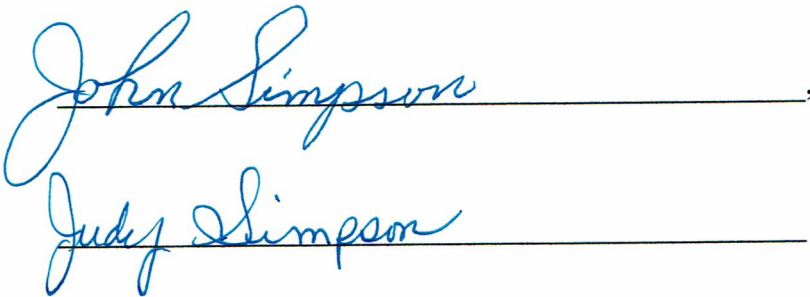 John Simpson,
Judy Simpson